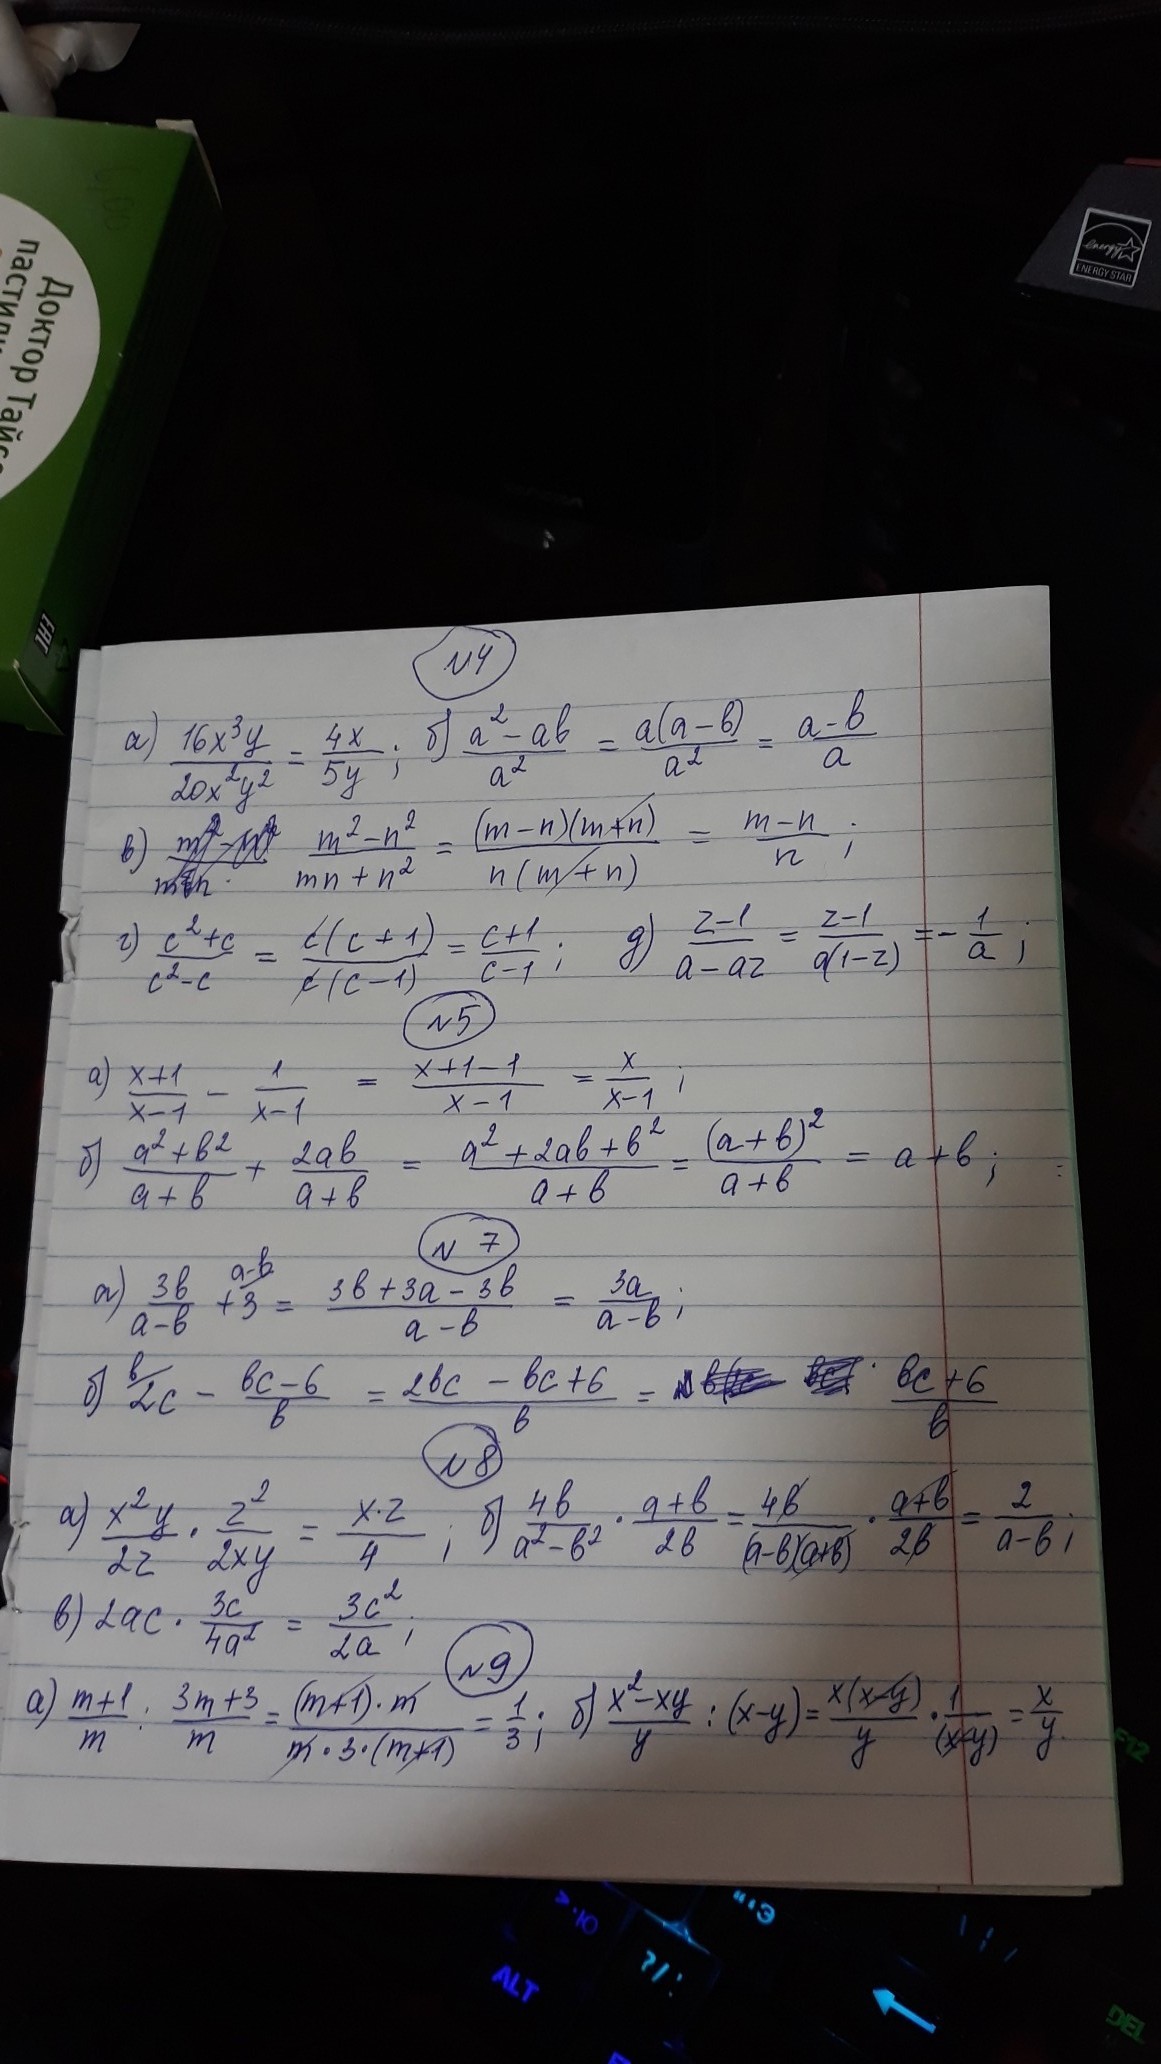 Доктор Тайс
пастилки
EAC
energy
ENERGY STAR
N4
а) 16x³y/20x²y² = 4x/5y ; б) a²-ab/a² = a(a-b)/a² = a-b/a
в) m²-n²/mn+n² = (m-n)(m+n)/n(m+n) = m-n/n ;
г) c²+c/c²-c = c(c+1)/c(c-1) = c+1/c-1 ; д) z-1/a-az = z-1/a(1-z) = -1/a ;
N5
а) x+1/x-1 - 1/x-1 = x+1-1/x-1 = x/x-1 ;
б) a²+b²/a+b + 2ab/a+b = a²+2ab+b²/a+b = (a+b)²/a+b = a+b ;
N 7
а) 3b/a-b + 3 a-b = 3b+3a-3b/a-b = 3a/a-b ;
б) b 2c - bc-6/b = 2bc-bc+6/b = bc+6/b
N8
а) x²y/2z · z²/2xy = x·z/4 ; б) 4b/a²-b² · a+b/2b = 4b/(a-b)(a+b) · a+b/2b = 2/a-b ;
в) 2ac · 3c/4a² = 3c²/2a ;
N9
а) m+1/m : 3m+3/m = (m+1)·m/m·3·(m+1) = 1/3 ; б) x²-xy/y : (x-y) = x(x-y)/y · 1/(x-y) = x/y
F12
>.Ю
"'Э
?/.
ALT
DEL